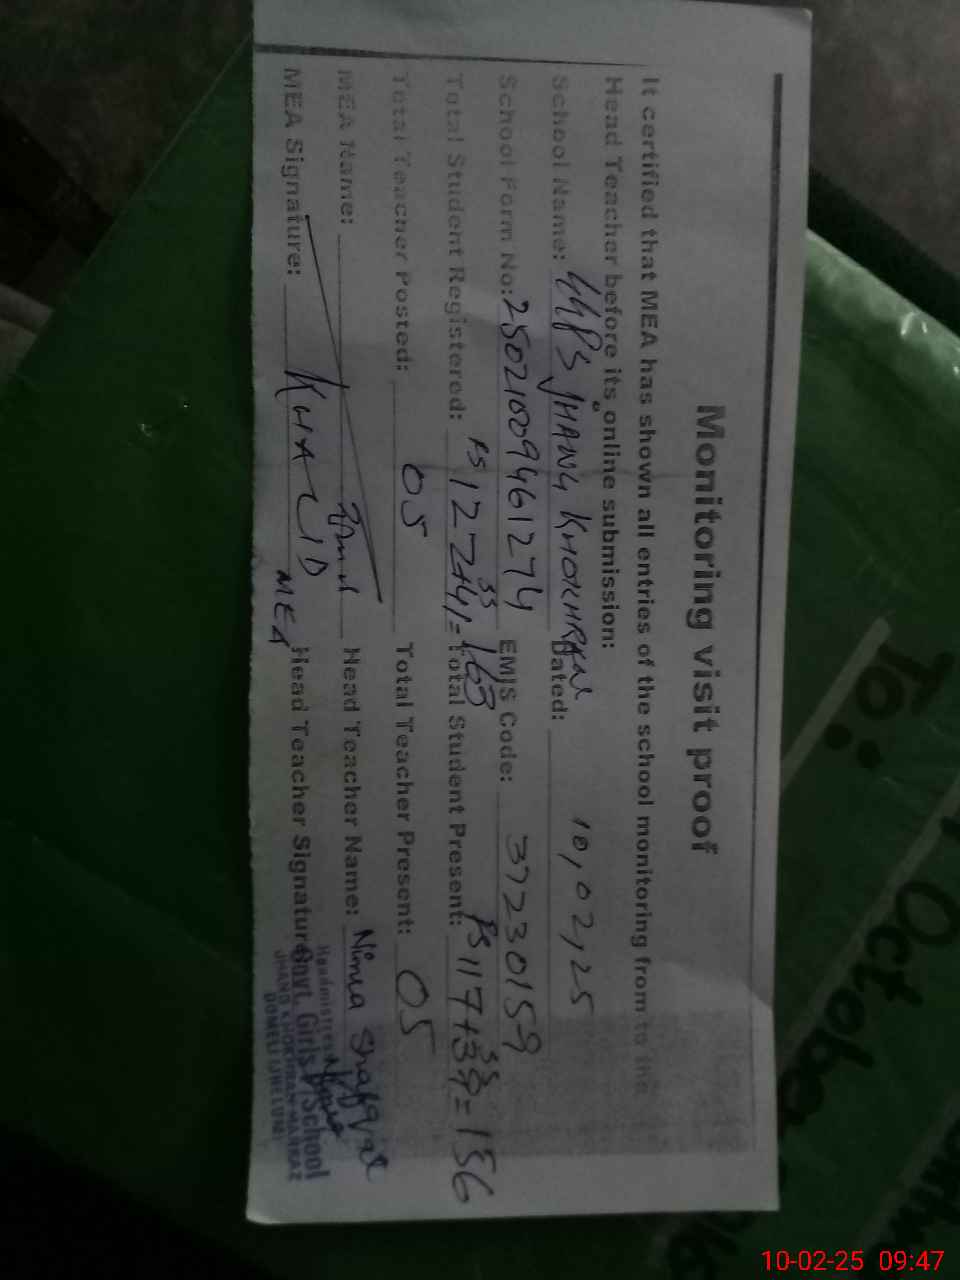 Monitoring visit proof
It certified that MEA has shown all entries of the school monitoring from to the
Head Teacher before its online submission:
School Name: GGPS JHANG KHOKHRAN Dated: 10,02,25
School Form No: 25021009461274 EMIS Code: 37230159
Total Student Registered: PS 127+41 SS =168 Total Student Present: PS 117+39 SS =156
Total Teacher Posted: 05 Total Teacher Present: 05
MEA Name: Head Teacher Name: Nimra Shafqat
MEA Signature: KHALID MEA Head Teacher Signature
Headmistress
Govt. Girls P/School
JHANG KHOKHRAN
DOMELI (JHELUM)
To:
Octobe
10-02-25 09:47